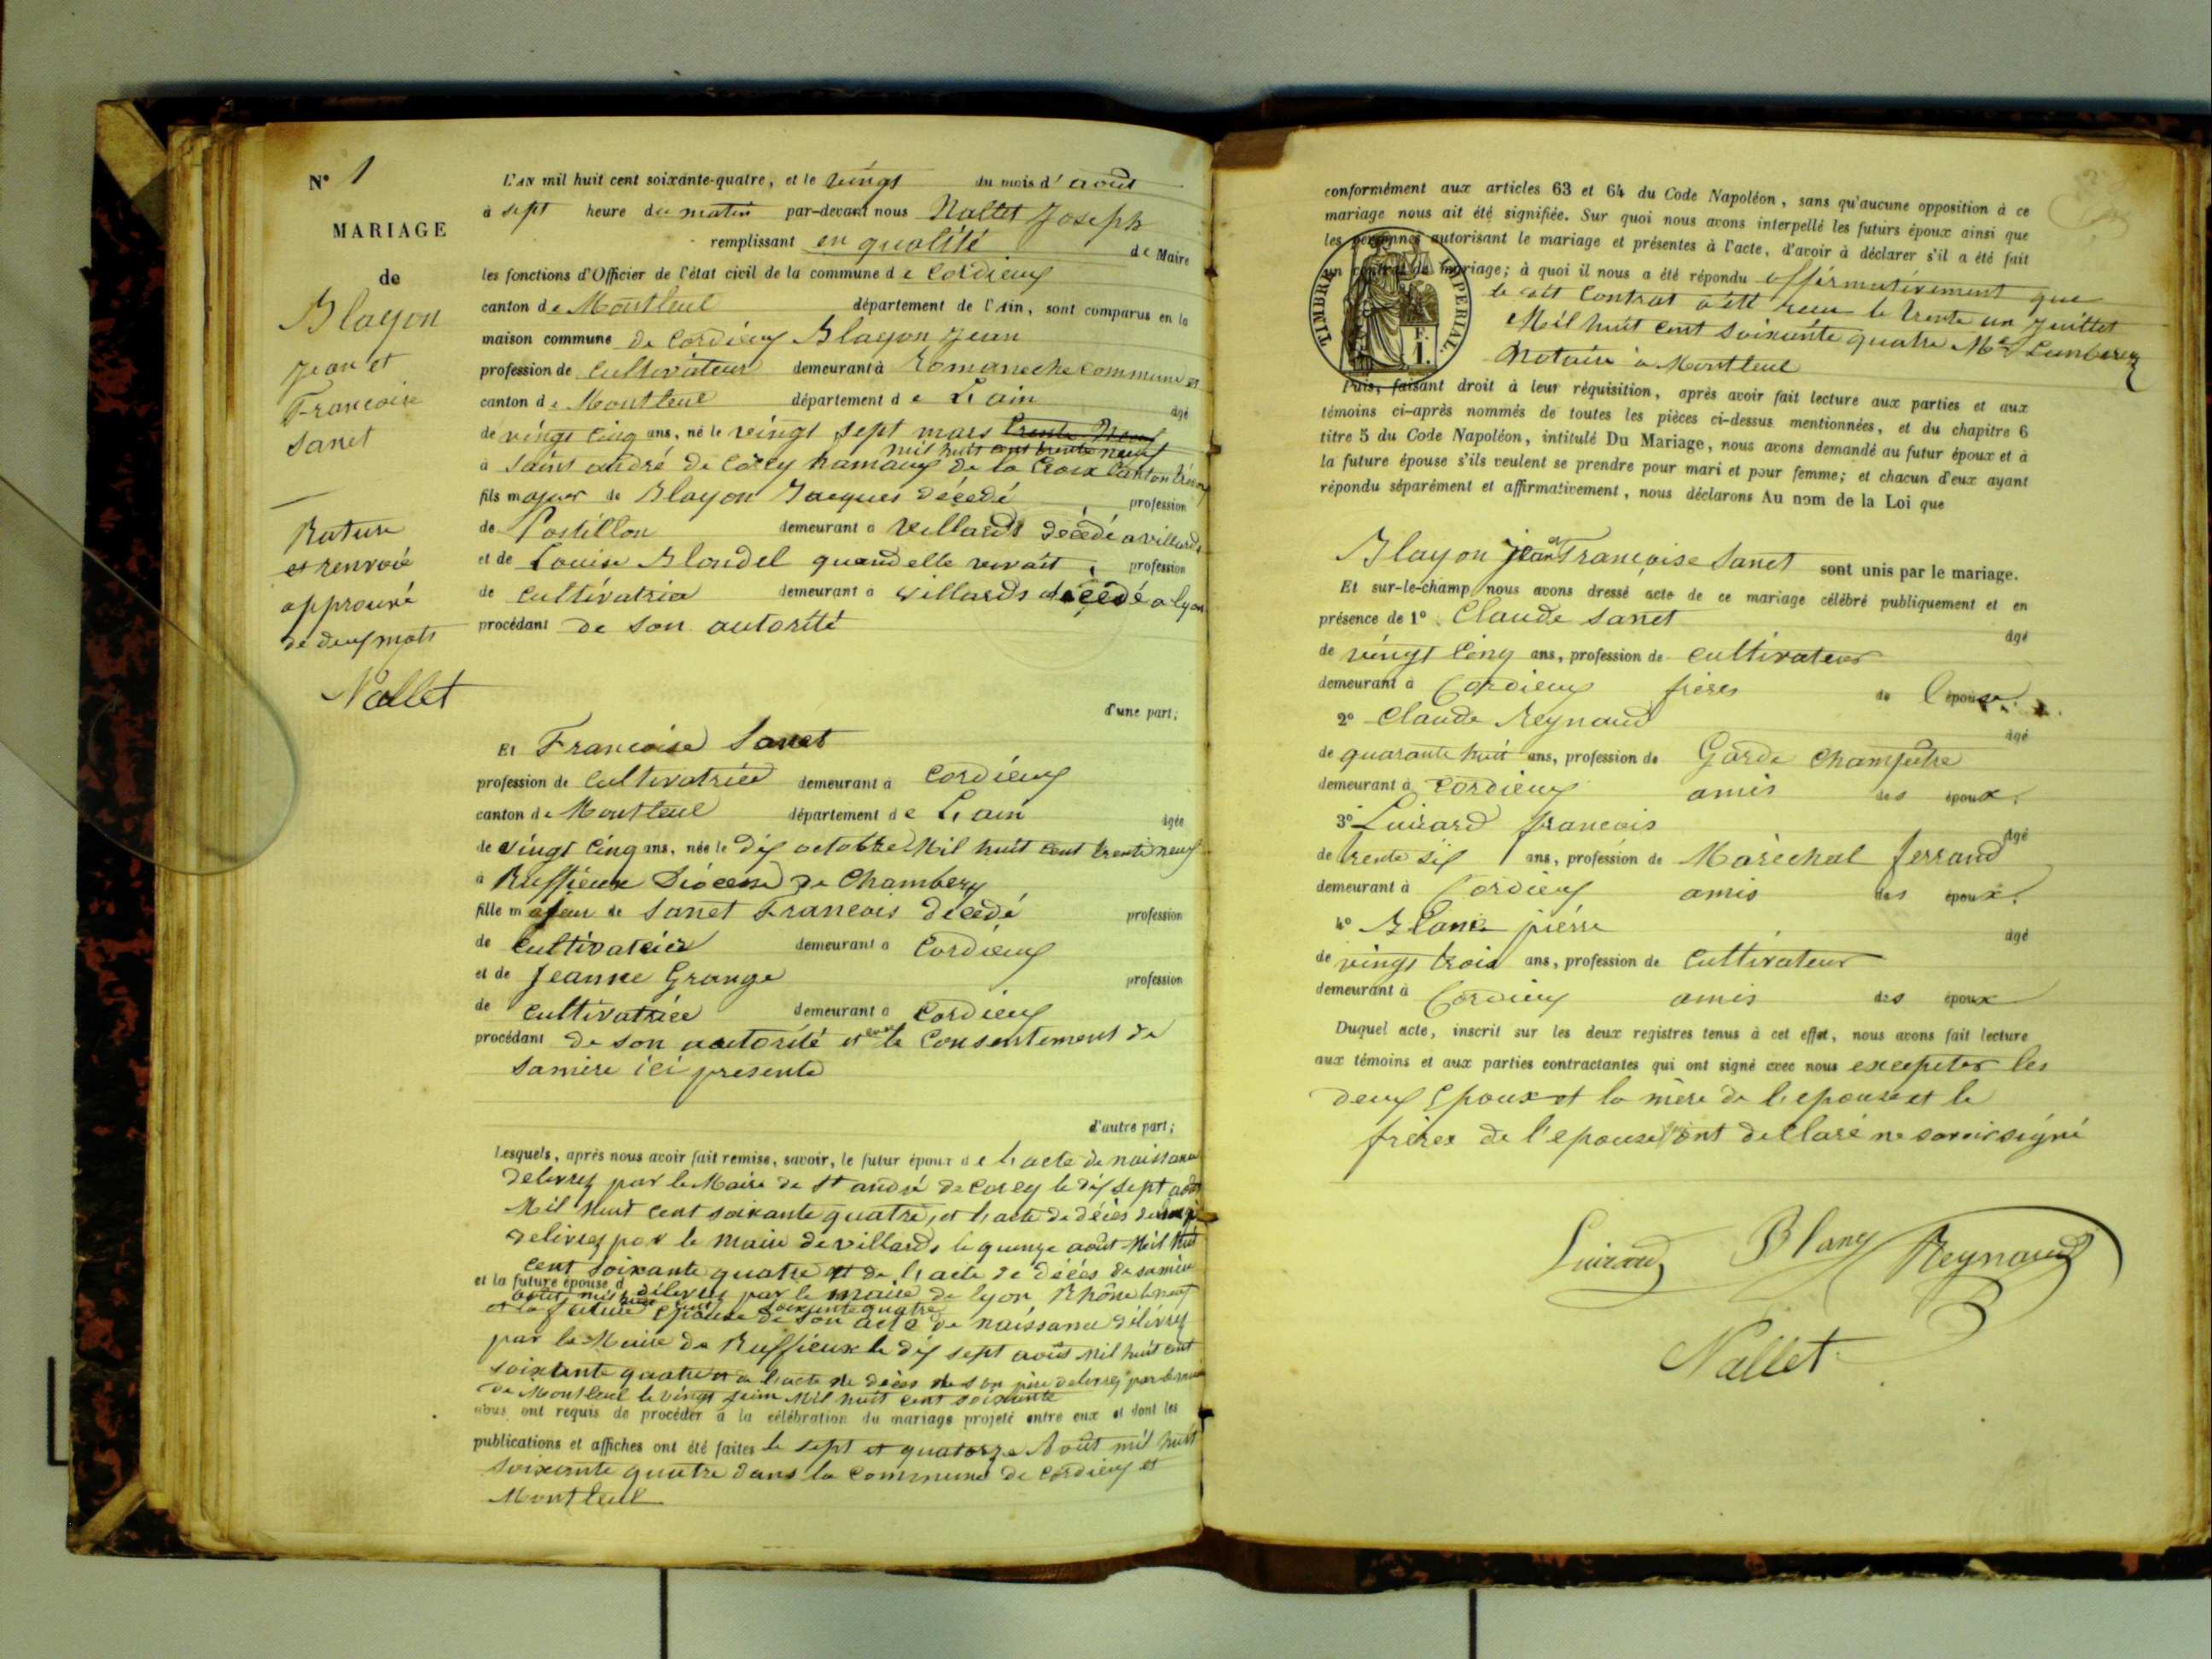 N° 1
MARIAGE
de
Blayon
Jean et
Francoise
Sanet
Rature
et renvoie
approuvé
de deux mots
Nallet
L'AN mil huit cent soixante-quatre, et le vingt du mois d'août
à sept heure du matin par-devant nous Nallet Joseph
remplissant en qualité de Maire
les fonctions d'Officier de l'état civil de la commune de Cordieux
canton de Montluel département de l'Ain, sont comparus en la
maison commune de Cordieux Blayon Jean
profession de Cultivateur demeurant à Romaneche Commune et
canton de Montluel département de L'ain âgé
de vingt cinq ans, né le vingt sept mars trente neuf
mil huit cent trente neuf
à Saint andré de Corcy hamaux de la Croix Canton
fils majeur de Blayon Jacques décédé profession
de Postillon demeurant à Villards décédé a villards
et de Louise Blondel quand elle vivait, profession
de Cultivatrice demeurant à Villards décédé a lyon
procédant de son autorité
d'une part;
Et Francoise Sanet
profession de Cultivatrice demeurant à Cordieux
canton de Montluel département de L'ain âgée
de vingt Cinq ans, née le dix octobre Mil huit Cent trente neuf
à Ruffieux Diocese de Chambery
fille majeur de Sanet Francois décedé profession
de Cultivateur demeurant à Cordieux
et de Jeanne Grange profession
de Cultivatrice demeurant à Cordieux
procédant de son autorité et avec le Consentement de
sa mère ici presente
d'autre part;
Lesquels, après nous avoir fait remise, savoir, le futur époux de l'acte de naissance
delivrez par le Maire de St andré de Corcy le dix sept août
Mil huit Cent soixante quatre, et l'acte de décès
delivrez par le Maire de villards le quinze août Mil huit
Cent soixante quatre et de l'acte de décès de sa mère
et la future épouse d
délivrez par le maire de lyon Rhône le neuf
août mil huit cent soixante quatre
et la future épouse de son acte de naissance délivrez
par le Maire de Ruffieux le dix sept août Mil huit cent
soixante quatre et de l'acte de décès de son père delivrez par le maire
de Montluel le vingt juin Mil huit cent soixante
nous ont requis de procéder à la célébration du mariage projeté entre eux et dont les
publications et affiches ont été faites le sept et quatorze Août mil huit
soixante quatre dans la Commune de Cordieux et
Montluel
conformément aux articles 63 et 64 du Code Napoléon, sans qu'aucune opposition à ce
mariage nous ait été signifiée. Sur quoi nous avons interpellé les futurs époux ainsi que
les personnes autorisant le mariage et présentes à l'acte, d'avoir à déclarer s'il a été fait
un contrat de mariage; à quoi il nous a été répondu affirmativement que
le dit Contrat a été recu le trente un Juillet
Mil huit Cent soixante quatre Me
Notaire à Montluel
TIMBRE IMPERIAL
F. 1.
Puis, faisant droit à leur réquisition, après avoir fait lecture aux parties et aux
témoins ci-après nommés de toutes les pièces ci-dessus mentionnées, et du chapitre 6
titre 5 du Code Napoléon, intitulé Du Mariage, nous avons demandé au futur époux et à
la future épouse s'ils veulent se prendre pour mari et pour femme; et chacun d'eux ayant
répondu séparément et affirmativement, nous déclarons Au nom de la Loi que
Blayon Jean et Françoise Sanet sont unis par le mariage.
Et sur-le-champ nous avons dressé acte de ce mariage célébré publiquement et en
présence de 1° Claude Sanet âgé
de vingt Cinq ans, profession de Cultivateur
demeurant à Cordieux frères de l'épouse.
2° Claude Reynaud âgé
de quarante huit ans, profession de Garde Champêtre
demeurant à Cordieux amis des époux.
3° Luirard francois âgé
de trente six ans, profession de Maréchal ferrand
demeurant à Cordieux amis des époux.
4° Blanc pierre âgé
de vingt trois ans, profession de Cultivateur
demeurant à Cordieux amis des époux
Duquel acte, inscrit sur les deux registres tenus à cet effet, nous avons fait lecture
aux témoins et aux parties contractantes qui ont signé avec nous excepter les
deux Epoux et la mère de l'epouse et le
frères de l'epouse qui ont déclaré ne savoir signé
Luirard Blanc Reynaud
Nallet